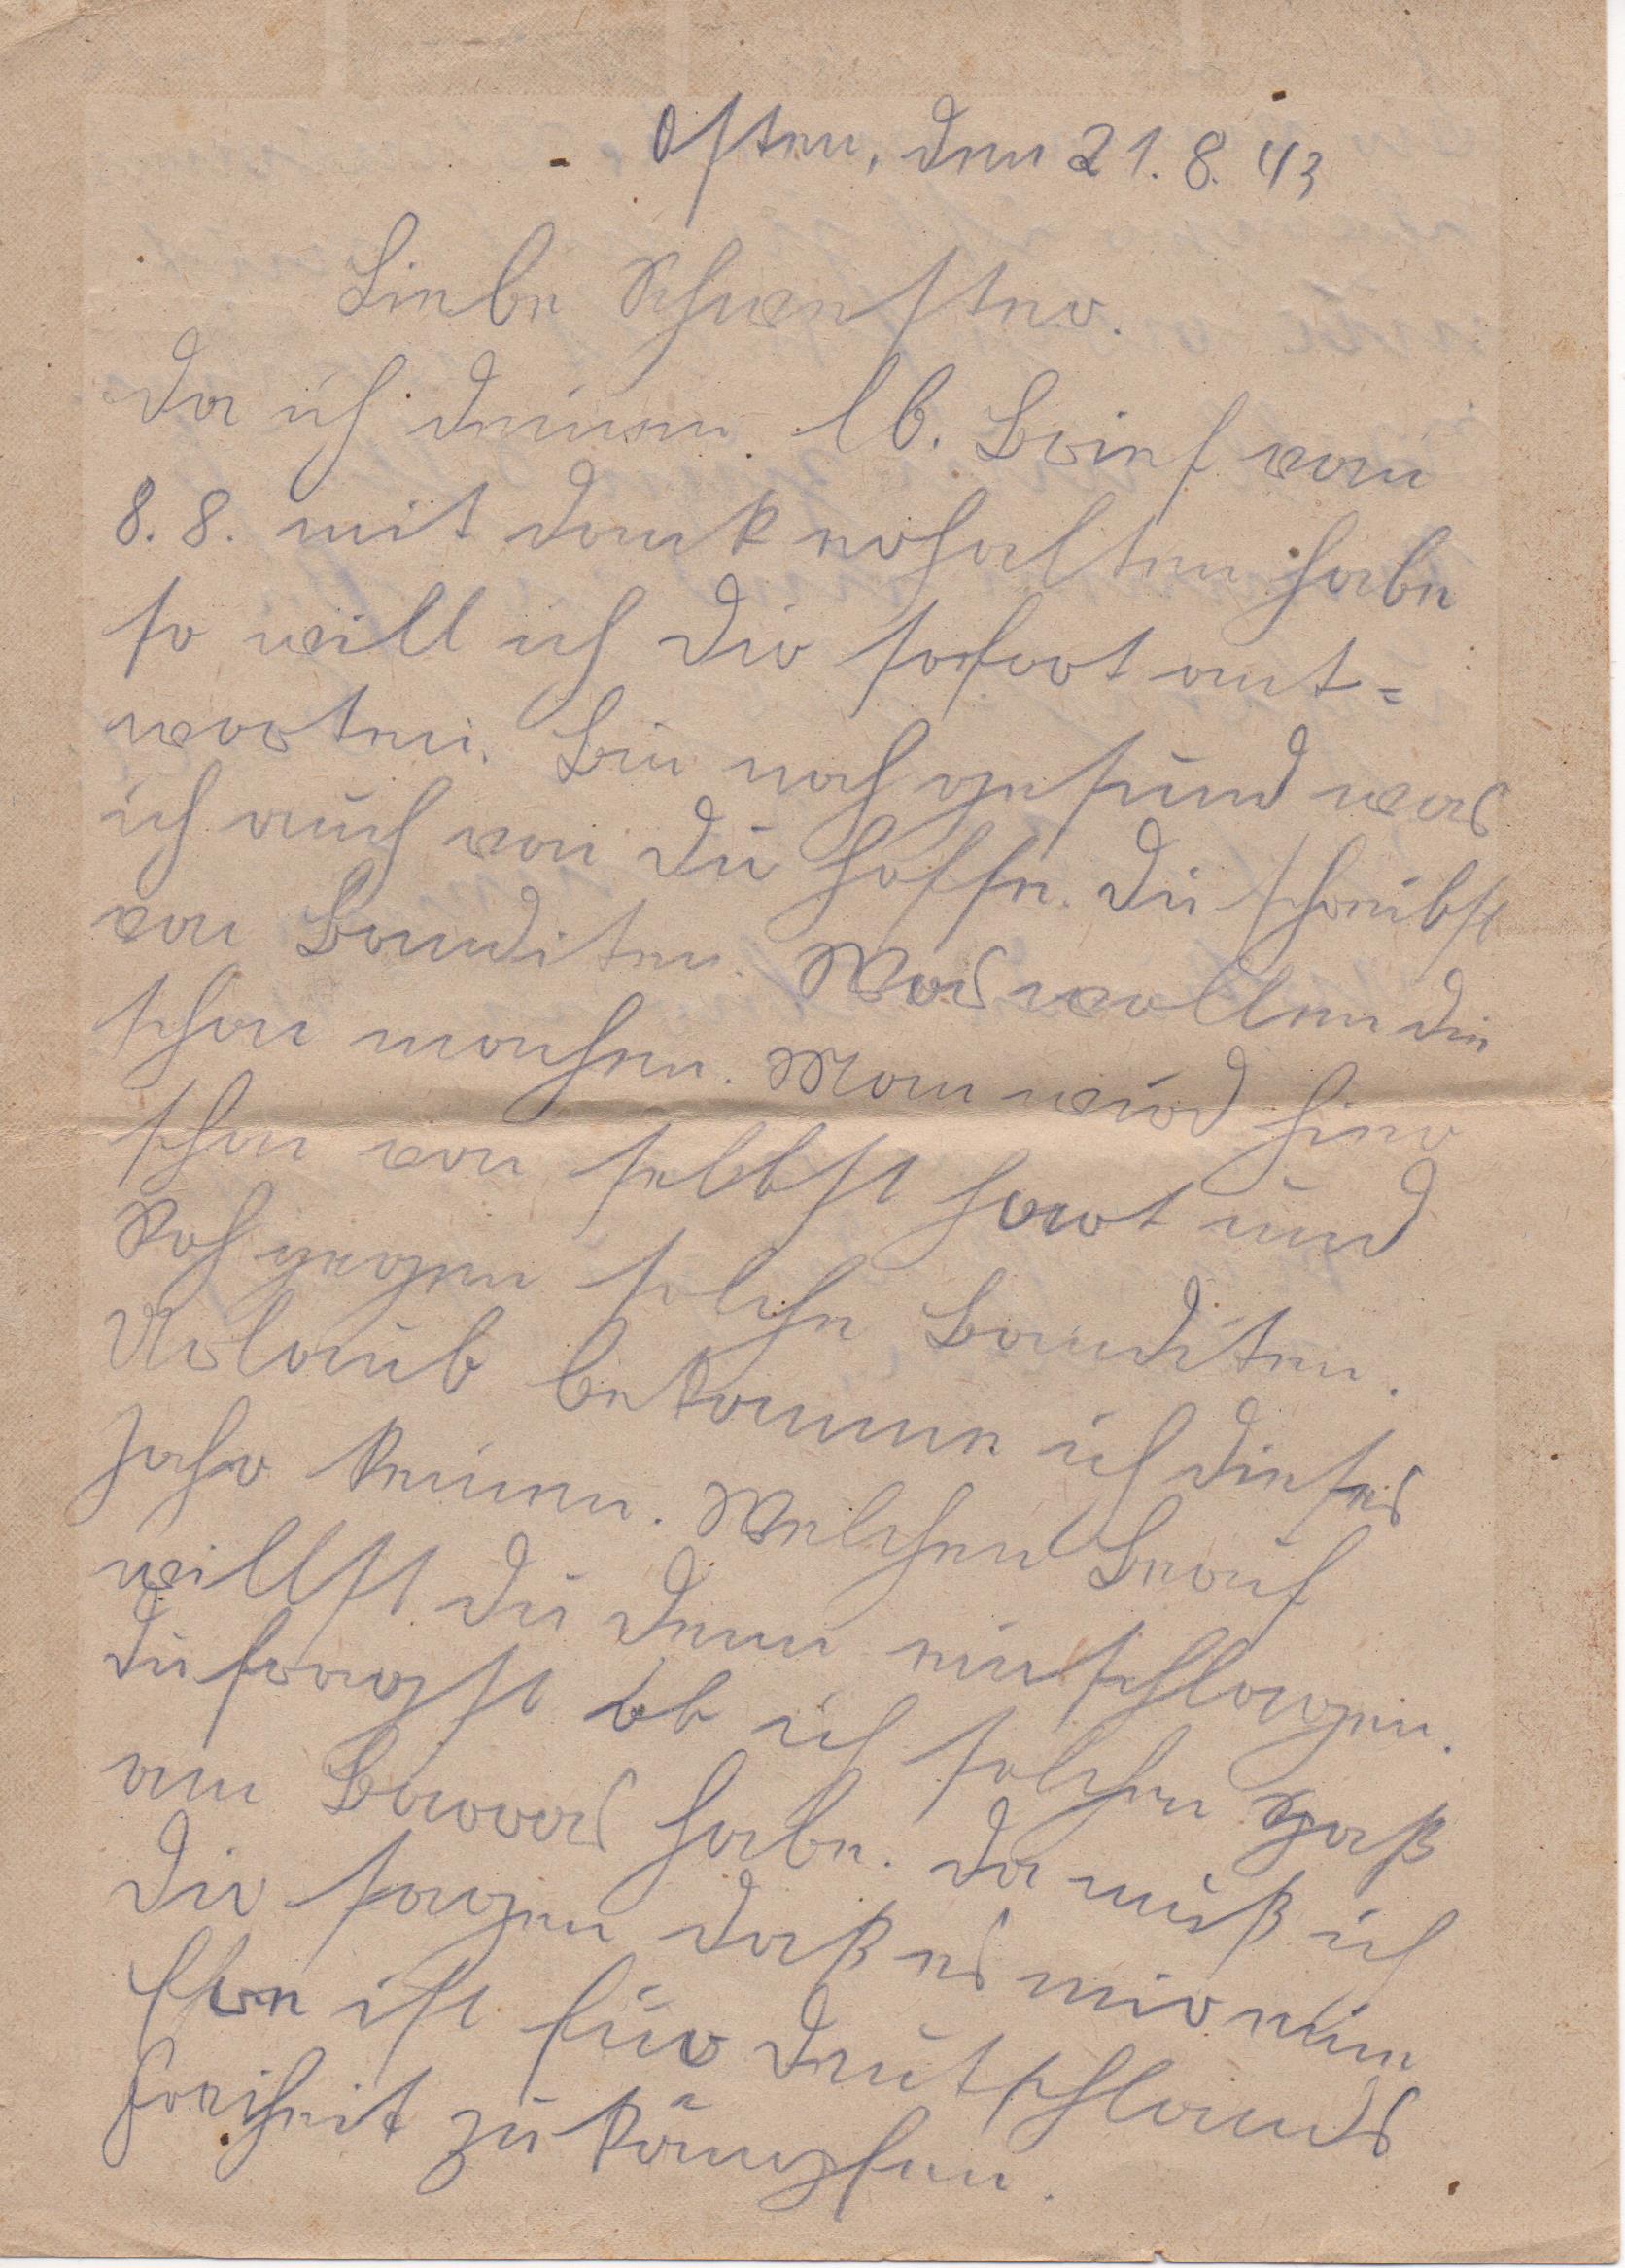 Osten, den 21.8.43
Liebe Schwester.
Da ich deinen lb. Brief vom
8.8. mit dank erhalten habe
so will ich dir sofort ant=
worten. Bin noch gesund was
ich auch von dir hoffe. Du schreibst
von Banditen. Was wollen die
schon machen. Man wird hier
schon von selbst hart und
Roh gegen solche Banditen.
Urlaub bekomme ich dieses
Jahr keinen. Welchen Beruf
willst du denn einschlagen.
Du fragst ob ich solchen Haß
am Barras habe. Da muß ich
dir sagen daß es mir eine
Ehre ist für Deutschlands
Freiheit zu kämpfen.